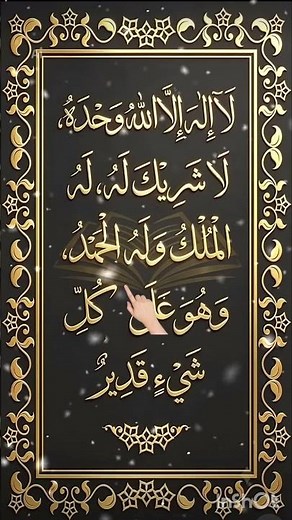 لَآ إِلٰهَ إِلَّا اللّٰهُ وَحْدَهُ،
لَا شَرِيْكَ لَهُ، لَهُ
الْمُلْكُ وَلَهُ الْحَمْدُ،
وَهُوَ عَلَى كُلِّ
شَيْءٍ قَدِيرٌ
InShot